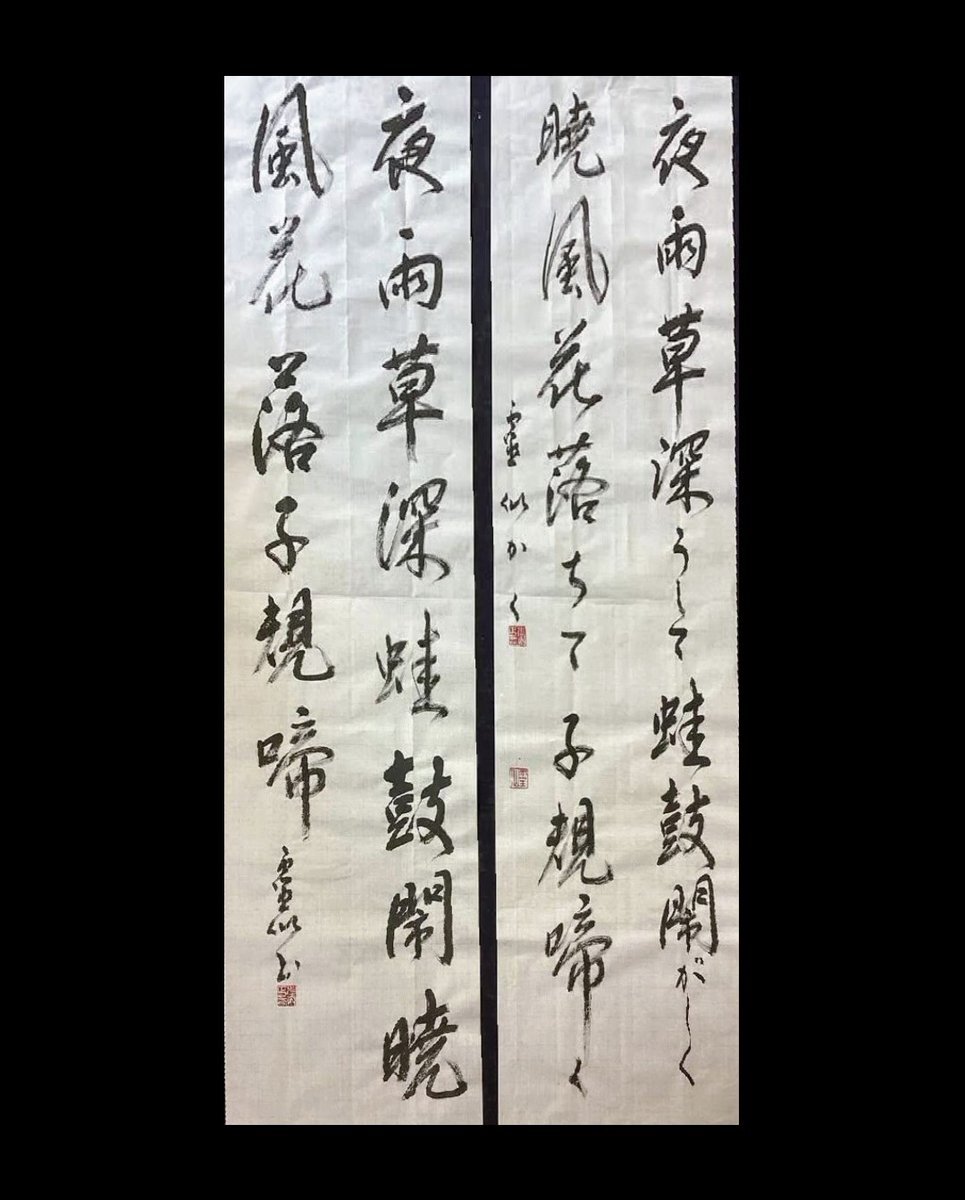 夜雨草深うして蛙鼓鬧がしく
暁風花落ちて子規啼く
虚似かく
夜雨草深蛙鼓鬧暁
風花落子規啼
虚似书